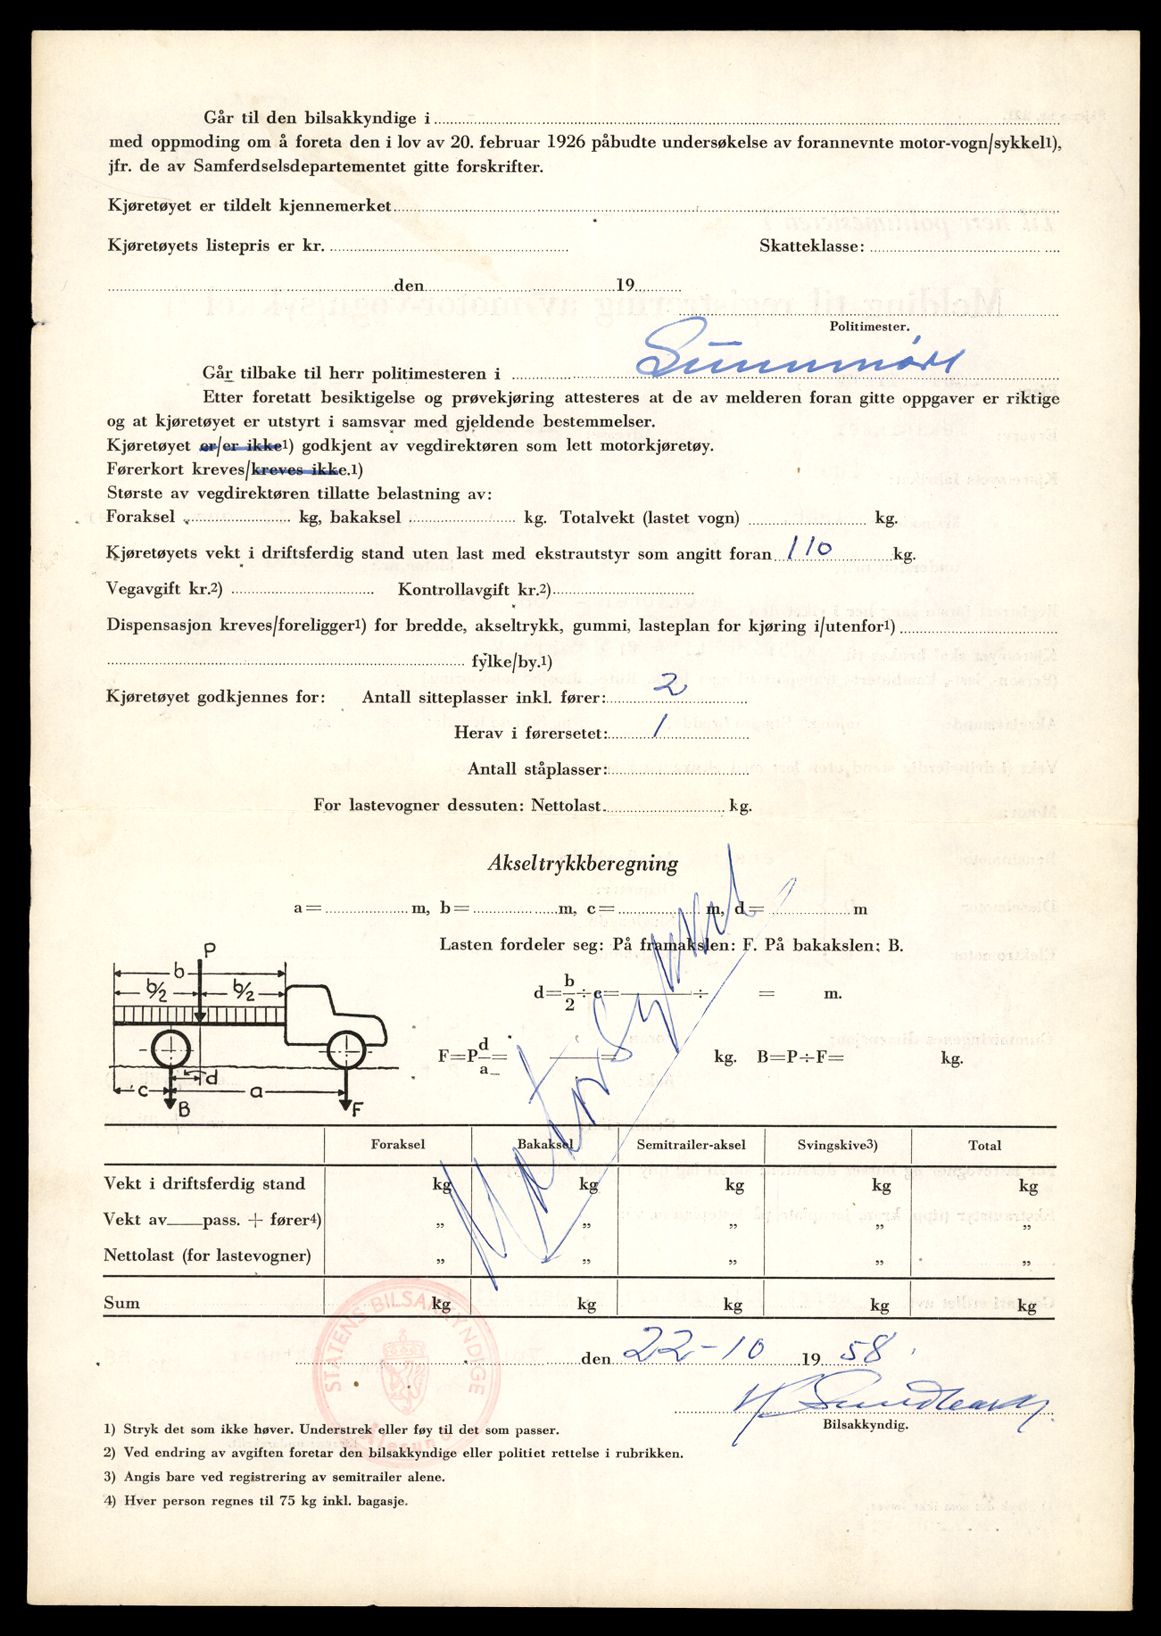 Går til den bilsakkyndige i
med oppmoding om å foreta den i lov av 20. februar 1926 påbudte undersøkelse av forannevnte motor-vogn/sykkel1),
jfr. de av Samferdselsdepartementet gitte forskrifter.
Kjøretøyet er tildelt kjennemerket
Kjøretøyets listepris er kr. Skatteklasse:
den 19
Politimester.
Går tilbake til herr politimesteren i Sunnmøre
Etter foretatt besiktigelse og prøvekjøring attesteres at de av melderen foran gitte oppgaver er riktige
og at kjøretøyet er utstyrt i samsvar med gjeldende bestemmelser.
Kjøretøyet er/er ikke1) godkjent av vegdirektøren som lett motorkjøretøy.
Førerkort kreves/kreves ikke.1)
Største av vegdirektøren tillatte belastning av:
Foraksel kg, bakaksel kg. Totalvekt (lastet vogn) kg.
Kjøretøyets vekt i driftsferdig stand uten last med ekstrautstyr som angitt foran 110 kg.
Vegavgift kr.2) Kontrollavgift kr.2)
Dispensasjon kreves/foreligger1) for bredde, akseltrykk, gummi, lasteplan for kjøring i/utenfor1)
fylke/by.1)
Kjøretøyet godkjennes for: Antall sitteplasser inkl. fører: 2
Herav i førersetet: 1
Antall ståplasser:
For lastevogner dessuten: Nettolast kg.
Akseltrykkberegning
a= m, b= m, c= m, d= m
Lasten fordeler seg: På framakslen: F. På bakakslen: B.
d=b/2÷c= ÷ = m.
F=P d/a= = kg. B=P÷F= kg.
P
b
b/2 b/2
d
c a
B F
Motorsykkel
Foraksel Bakaksel Semitrailer-aksel Svingskive3) Total
Vekt i driftsferdig stand kg kg kg kg kg
Vekt av pass. + fører4) „ „ „ „ „
Nettolast (for lastevogner) „ „ „ „ „
Sum kg kg kg kg kg
STATENS BILSAKKYNDIGE
den 22-10 19 58
Bilsakkyndig.
1) Stryk det som ikke høver. Understrek eller føy til det som passer.
2) Ved endring av avgiften foretar den bilsakkyndige eller politiet rettelse i rubrikken.
3) Angis bare ved registrering av semitrailer alene.
4) Hver person regnes til 75 kg inkl. bagasje.